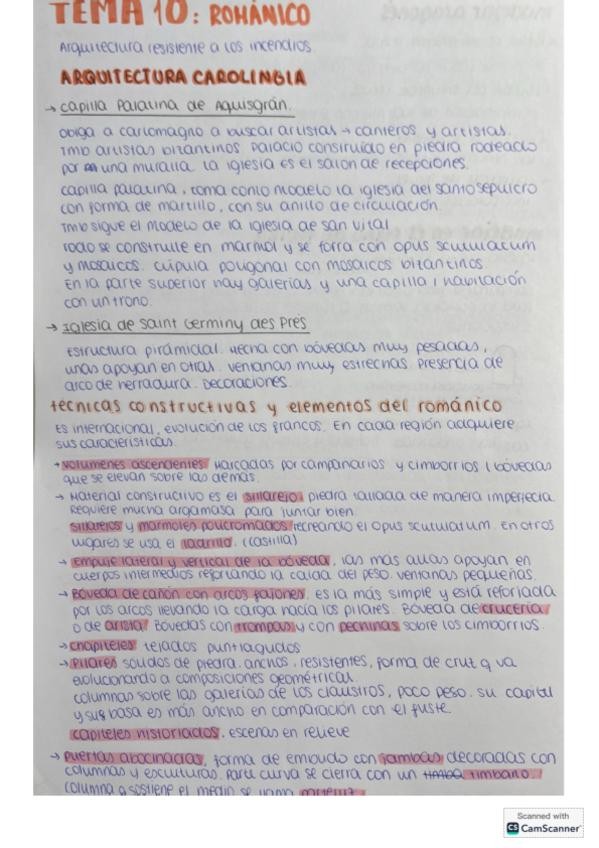 TEMA 10: ROMÁNICO
Arquitectura resistente a los incendios.
ARQUITECTURA CAROLINGIA
→ Capilla Palatina de Aquisgrán.
Obliga a carlomagno a buscar artistas → canteros y artistas.
Tmb artistas bizantinos. Palacio construido en piedra rodeado
por una muralla. La iglesia es el salon de recepciones.
Capilla palatina, toma como modelo la iglesia del santo sepulcro
con forma de martillo, con su anillo de circulación.
Tmb sigue el modelo de la iglesia de san vital
Todo se construlle en marmol y se forra con opus scutulatum
y mosaicos. Cúpula poligonal con mosaicos bizantinos.
En la parte superior hay galerías y una capilla / habitación
con un trono.
→ Iglesia de Saint Germiny des Pres
Estructura pirámidal. Hecha con bóvedas muy pesadas,
unas apoyan en otras. Ventanas muy estrechas. Presencia de
arco de herradura. Decoraciones.
técnicas constructivas y elementos del románico
Es internacional, evolución de los francos. En cada región adquiere
sus características.
→ Volumenes ascendentes Marcadas por campanarios y cimborrios (bóvedas
que se elevan sobre las demás.
→ Material constructivo es el sillarejo: piedra tallada de manera imperfecta.
Requiere mucha argamasa para juntar bien.
Sillarejos y marmoles policromados recreando el opus scutulatum. En otros
lugares se usa el ladrillo. (Castilla)
→ Empuje lateral y vertical de la bóveda, las más altas apoyan en
cuerpos intermedios reforzando la caída del peso. Ventanas pequeñas.
→ Bóveda de cañón con arcos fajones. Es la más simple y está reforzada
por los arcos llevando la carga hacía los pilares. Bóveda de crucería
o de arista. Bóvedas con trompas y con pechinas sobre los cimborrios.
→ Chapiteles tejados puntiagudos
→ Pilares solidos de piedra. anchos, resistentes, forma de cruz q va
evolucionando a composiciones geométricas.
Columnas sobre las galerías de los claustros, poco peso. Su capitel
y sus basa es más ancho en comparación con el fuste.
capiteles historiados, escenas en relieve
→ Puertas abocinadas, forma de embudo con jambas decoradas con
columnas y esculturas. Parte curva se cierra con un timbano.
columna q sostiene el medio se llama
Scanned with
CS CamScanner